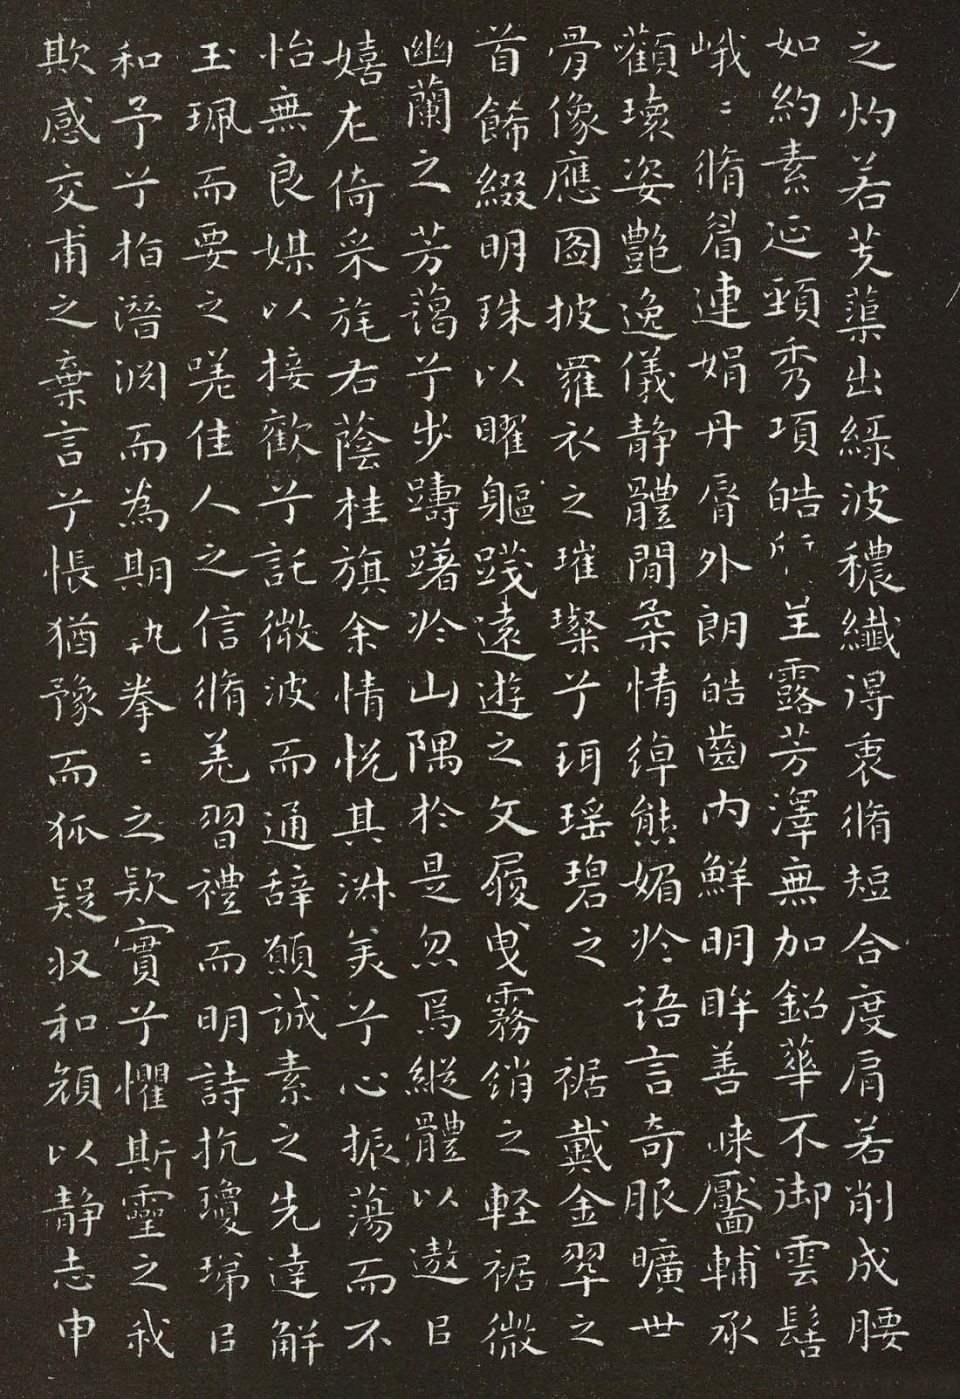 之灼若芙蕖出緑波穠纖得衷脩短合度肩若削成腰
如約素延頸秀項皓呈露芳澤無加鉛華不御雲髻
峨〻脩眉連娟丹脣外朗皓齒内鮮明眸善睞靨輔承
顴瓌姿艷逸儀静體閒柔情綽態媚於語言奇服曠世
骨像應圖披羅衣之璀璨兮珥瑶碧之裾戴金翠之
首飾綴明珠以曜軀踐遠遊之文履曳霧綃之軽裾微
幽蘭之芳藹兮步躊躇於山隅於是忽焉縱體以遨以
嬉左倚采旄右蔭桂旗余情悦其淋美兮心振蕩而不
怡無良媒以接歡兮託微波而通辭願誠素之先達解
玉珮而要之嗟佳人之信脩羌習禮而明詩抗瓊珶以
和予兮指潛淵而為期執拳〻之欵實兮懼斯靈之我
欺感交甫之棄言兮悵猶豫而狐疑収和顔以静志申